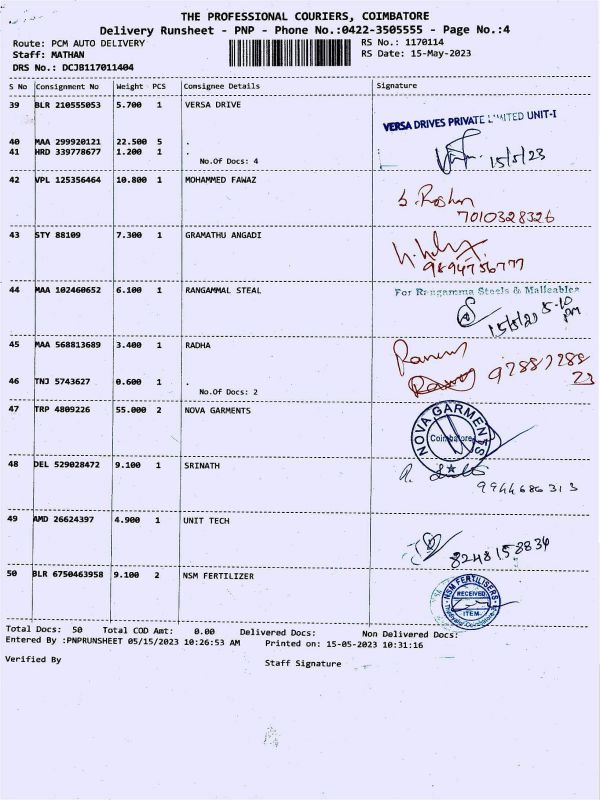 THE PROFESSIONAL COURIERS, COIMBATORE
Delivery Runsheet - PNP - Phone No.:0422-3505555 - Page No.:4
Route: PCM AUTO DELIVERY RS No.: 1170114
Staff: MATHAN RS Date: 15-May-2023
DRS No.: DCJB117011404
S No Consignment No Weight PCS Consignee Details Signature
39 BLR 210555053 5.700 1 VERSA DRIVE
VERSA DRIVES PRIVATE LIMITED UNIT-I
40 MAA 299920121 22.500 5 .
41 HRD 339778677 1.200 1 .
15/5/23
No.Of Docs: 4
42 VPL 125356464 10.800 1 MOHAMMED FAWAZ
7010328326
43 STY 88109 7.300 1 GRAMATHU ANGADI
9894756777
44 MAA 102460652 6.100 1 RANGAMMAL STEAL
For Rangamma Steels & Malleables
5-10
pm
45 MAA 568813689 3.400 1 RADHA
46 TNJ 5743627 0.600 1 .
No.Of Docs: 2
47 TRP 4809226 55.000 2 NOVA GARMENTS
NOVA GARMENTS
Coimbatore
48 DEL 529028472 9.100 1 SRINATH
9944686313
49 AMD 26624397 4.900 1 UNIT TECH
8248158834
50 BLR 6750463958 9.100 2 NSM FERTILIZER
NSM FERTILISERS
RECEIVED
ITEM
Total Docs: 50 Total COD Amt: 0.00 Delivered Docs: Non Delivered Docs:
Entered By :PNPRUNSHEET 05/15/2023 10:26:53 AM Printed on: 15-05-2023 10:31:16
Verified By Staff Signature